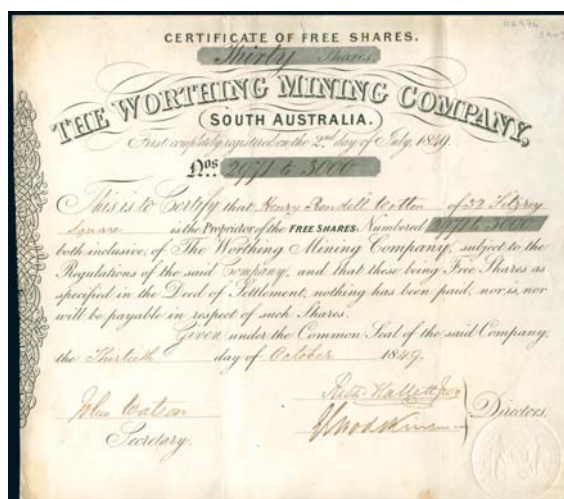 CERTIFICATE OF FREE SHARES.
Thirty Shares
THE WORTHING MINING COMPANY,
SOUTH AUSTRALIA.
First completely registered on the 2nd day of July, 1849.
Nos 2971 to 3000
This is to Certify that Henry Rendell Wotton of 32 Fitzroy
Square is the Proprietor of the FREE SHARES. Numbered 2971 to 3000
both inclusive, of The Worthing Mining Company, subject to the
Regulations of the said Company, and that these being Free Shares as
specified in the Deed of Settlement, nothing has been paid, nor is, nor
will be payable in respect of such Shares.
Given under the Common Seal of the said Company,
the Thirtieth day of October 1849.
John Watson
Secretary.
Hallett
Directors.